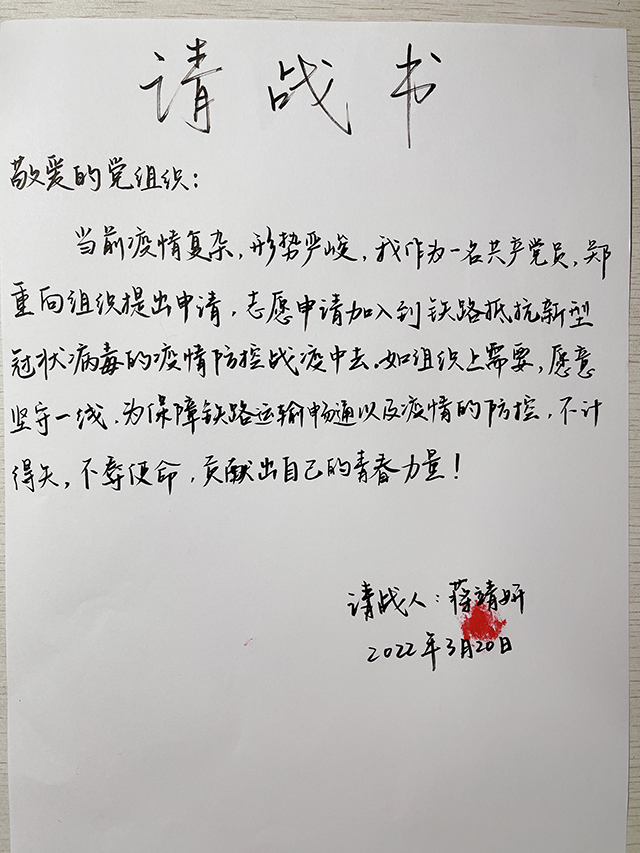 请战书
敬爱的党组织：
当前疫情复杂，形势严峻，我作为一名共产党员，郑
重向组织提出申请，志愿申请加入到铁路抵抗新型
冠状病毒的疫情防控战疫中去。如组织上需要，愿意
坚守一线，为保障铁路运输畅通以及疫情的防控，不计
得失，不辱使命，贡献出自己的青春力量！
请战人：蒋靖妍
2022年3月20日